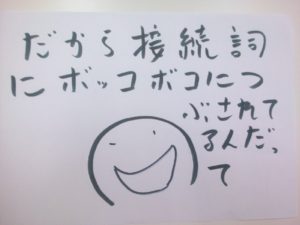 だから接続詞
にボッコボコにつ
ぶされて
るんだっ
て